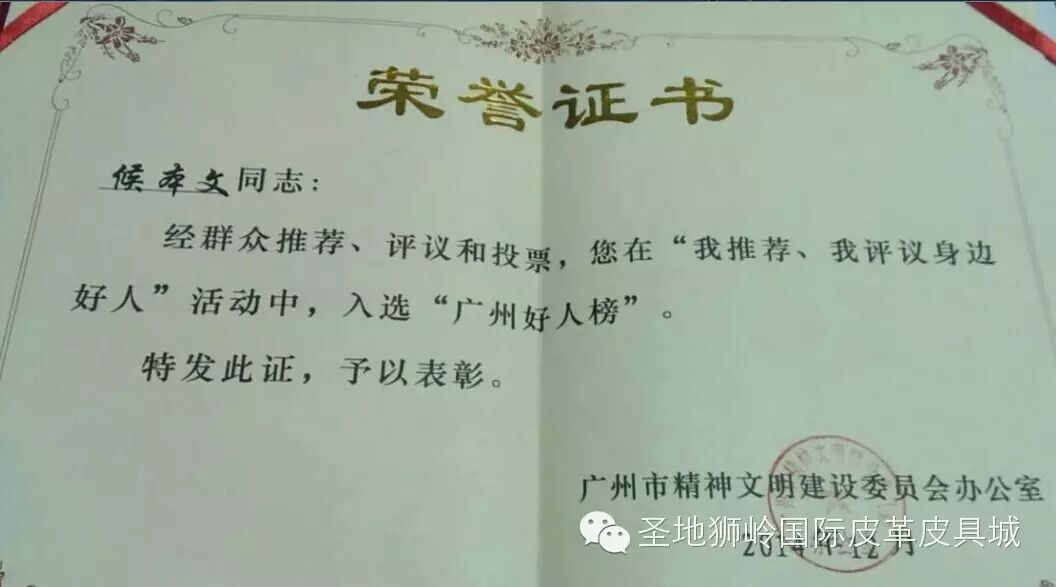 荣誉证书
候本文同志:
经群众推荐、评议和投票,您在“我推荐、我评议身边
好人”活动中,入选“广州好人榜”。
特发此证,予以表彰。
广州市精神文明建设委员会办公室
圣地狮岭国际皮革皮具城
2014年12月